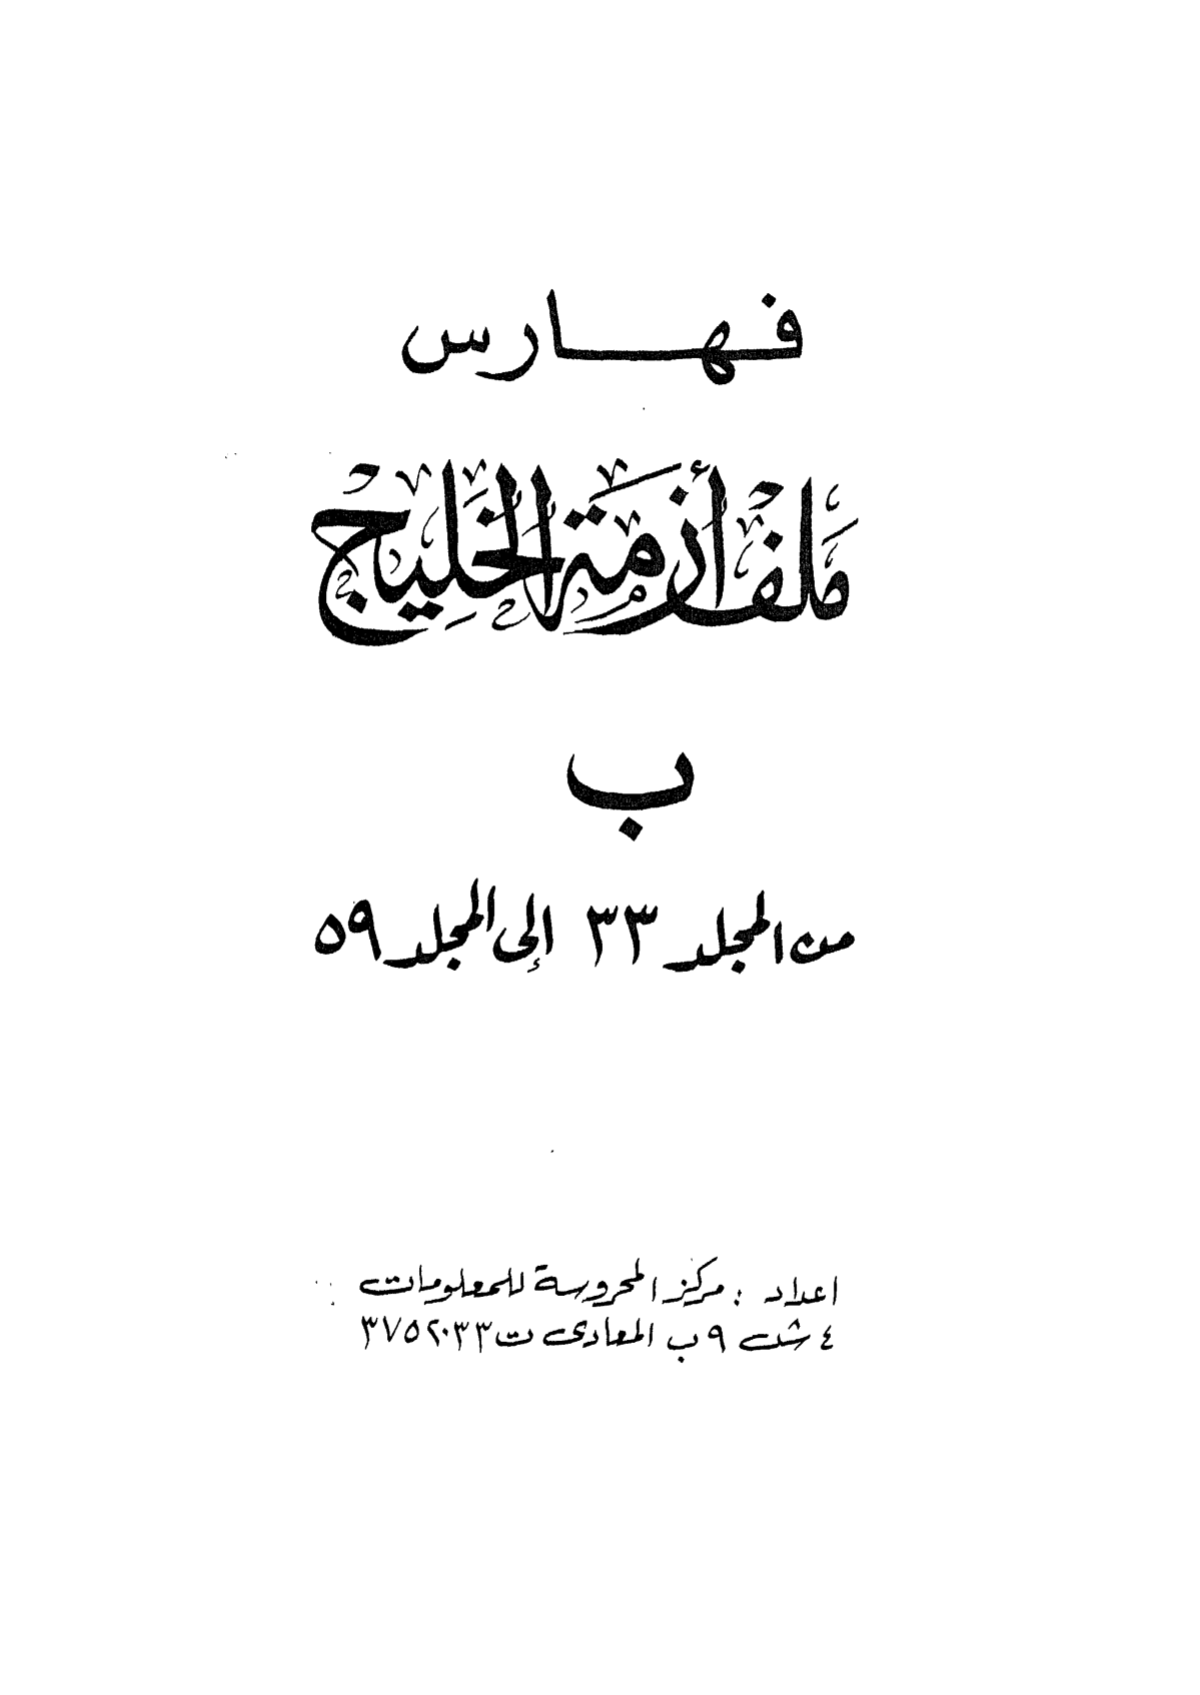 فهارس
ملف أزمة الخليج
ب
من المجلد ٣٣ إلى المجلد ٥٩
اعداد : مركز المحروسة للمعلومات
٤ ش ٩ ب المعادى ت ٣٧٥٢٠٣٣